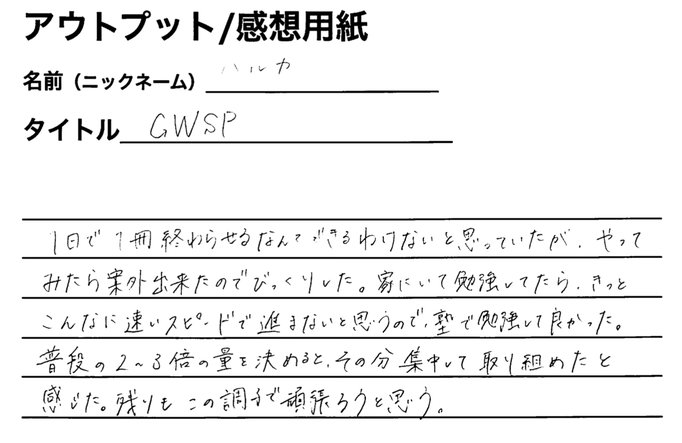 アウトプット/感想用紙
名前（ニックネーム） ハルカ
タイトル GWSP
1日で1冊終わらせるなんてできるわけないと思っていたが、やって
みたら案外出来たのでびっくりした。家にいて勉強してたら、きっと
こんなに速いスピードで進まないと思うので、塾で勉強して良かった。
普段の2～3倍の量を決めると、その分集中して取り組めたと
感じた。残りもこの調子で頑張ろうと思う。